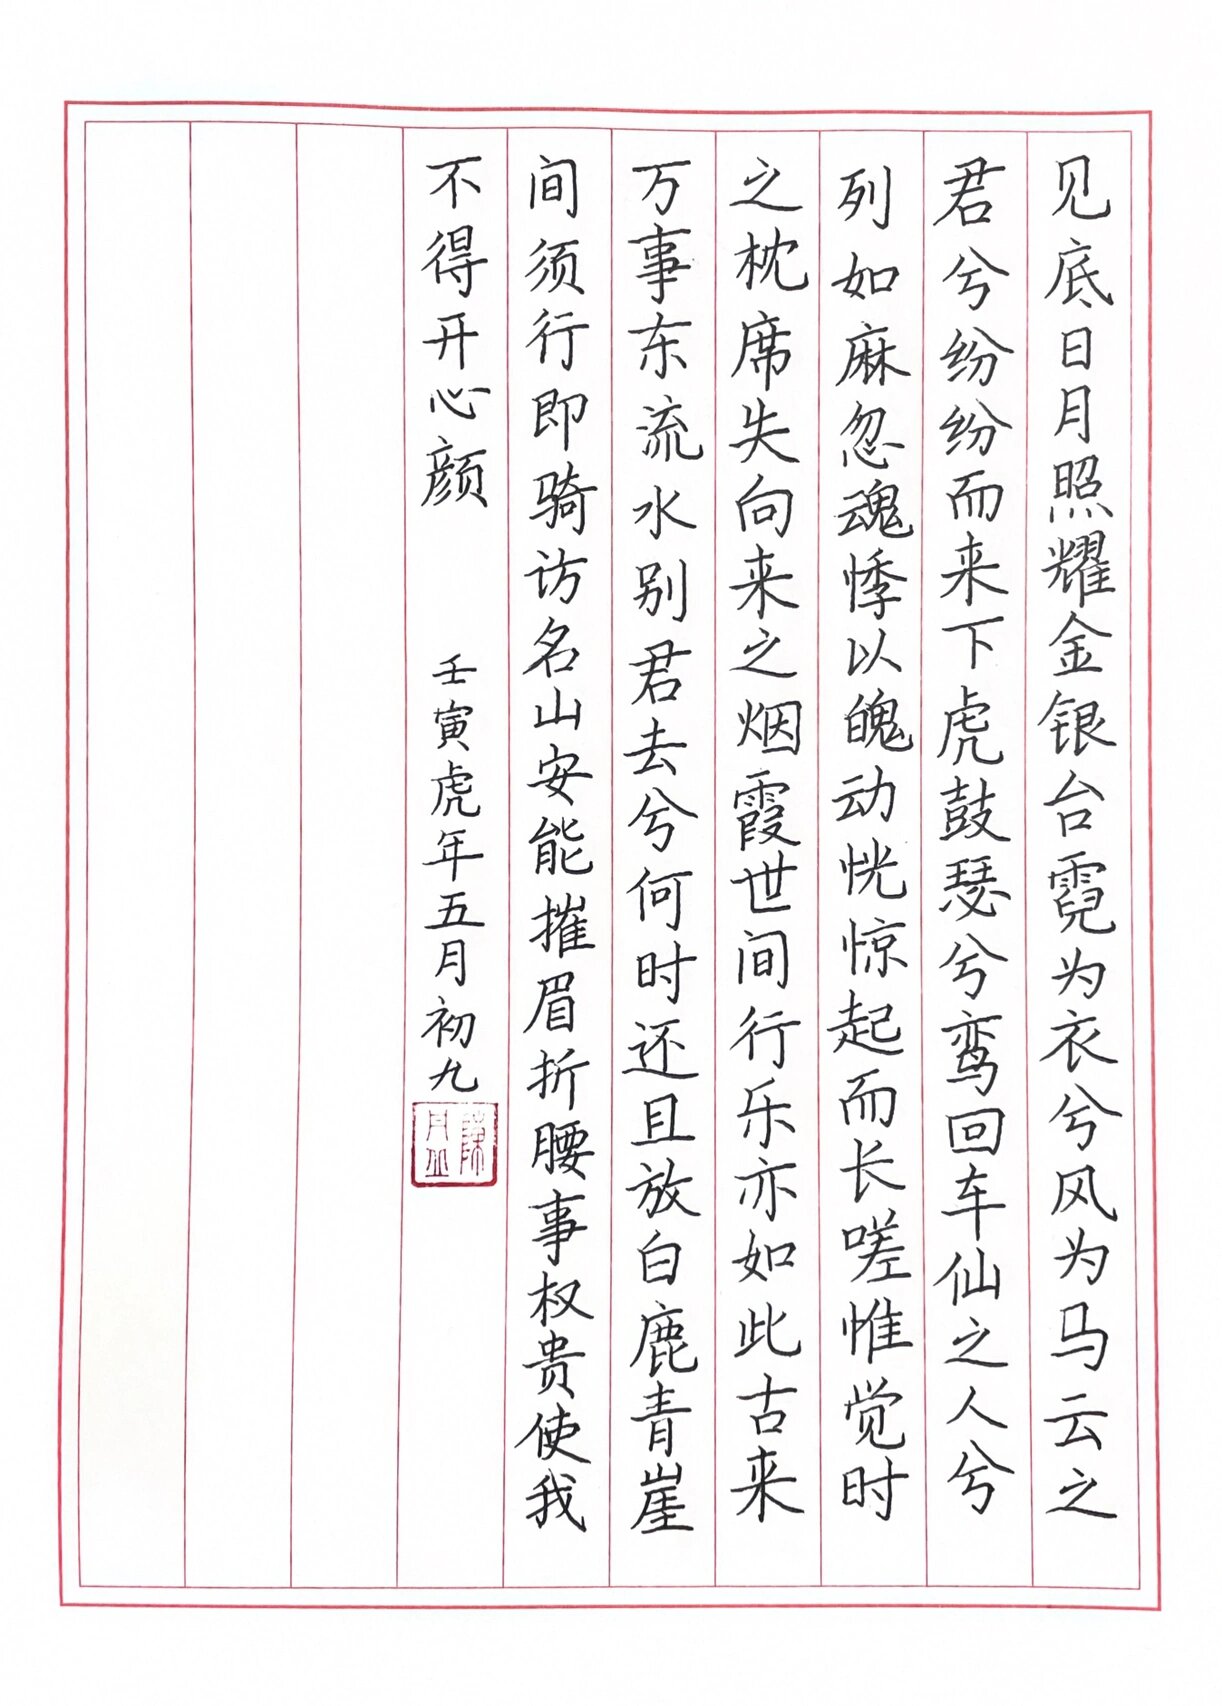 见底日月照耀金银台霓为衣兮风为马云之
君兮纷纷而来下虎鼓瑟兮鸾回车仙之人兮
列如麻忽魂悸以魄动恍惊起而长嗟惟觉时
之枕席失向来之烟霞世间行乐亦如此古来
万事东流水别君去兮何时还且放白鹿青崖
间须行即骑访名山安能摧眉折腰事权贵使我
不得开心颜
壬寅虎年五月初九